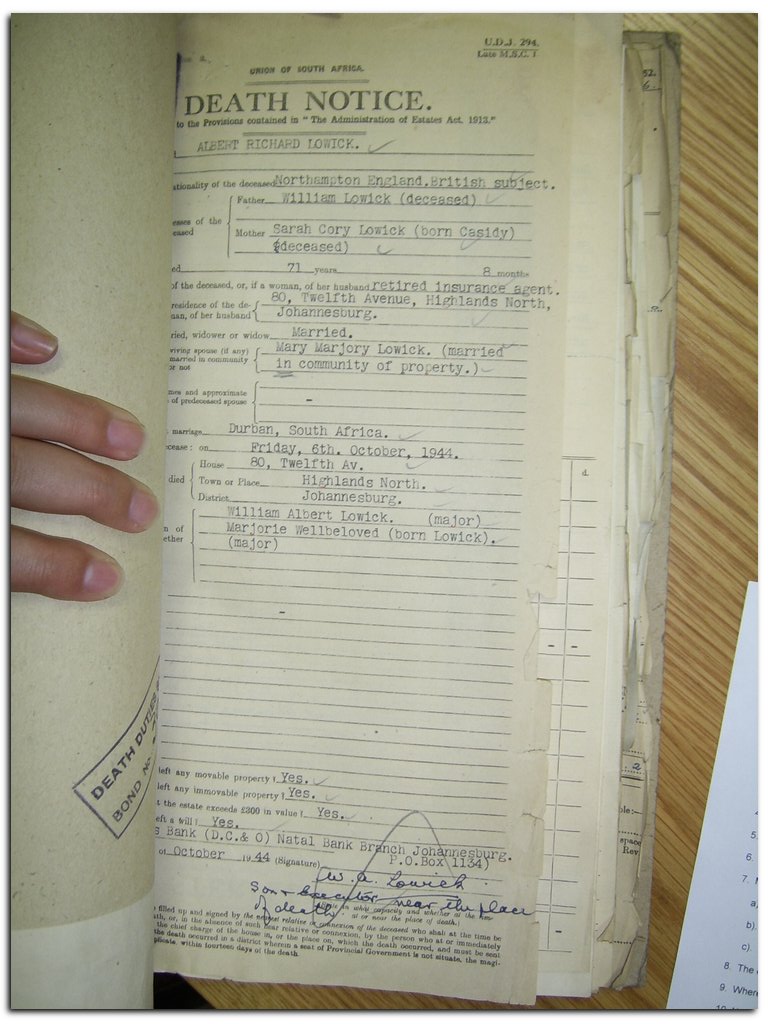 U.D.J. 294.
Late M.S.C. 1
UNION OF SOUTH AFRICA.
DEATH NOTICE.
to the Provisions contained in "The Administration of Estates Act, 1913."
ALBERT RICHARD LOWICK.
ationality of the deceased Northampton England.British subject.
Father William Lowick (deceased)
esses of the
eased
Mother Sarah Cory Lowick (born Casidy)
(deceased)
ed 71 years 8 months
of the deceased, or, if a woman, of her husband retired insurance agent.
residence of the de- 80, Twelfth Avenue, Highlands North,
man, of her husband Johannesburg.
ried, widower or widow Married.
viving spouse (if any) Mary Marjory Lowick. (married
married in community in community of property.)
or not
mes and approximate
of predeceased spouse -
marriage Durban, South Africa.
cease: on Friday, 6th. October, 1944.
House 80, Twelfth Av.
died Town or Place Highlands North.
District Johannesburg.
William Albert Lowick. (major)
n of Marjorie Wellbeloved (born Lowick).
ether (major)
-
left any movable property? Yes.
left any immovable property? Yes.
t the estate exceeds £300 in value? Yes.
eft a will? Yes.
s Bank (D.C.& O) Natal Bank Branch Johannesburg.
of October 1944 (Signature) P.O.Box 1134)
W. A. Lowick
Son & Executor near the place
of death.
in what capacity and whether at the
at or near the place of death.
filled up and signed by the nearest relative or connexion of the deceased who shall at the time be
ath, or, in the absence of such near relative or connexion, by the person who at or immediately
the chief charge of the house in, or the place on, which the death occurred, and must be sent
the death occurred in a district wherein a seat of Provincial Government is not situate, the magi-
plicate, within fourteen days of the death
DEATH DUTIES
BOND No.
52.
6.
d.
- -
2
ble:—
space
Rev
5.
6.
7.
a)
b).
c).
8. The
9. Where